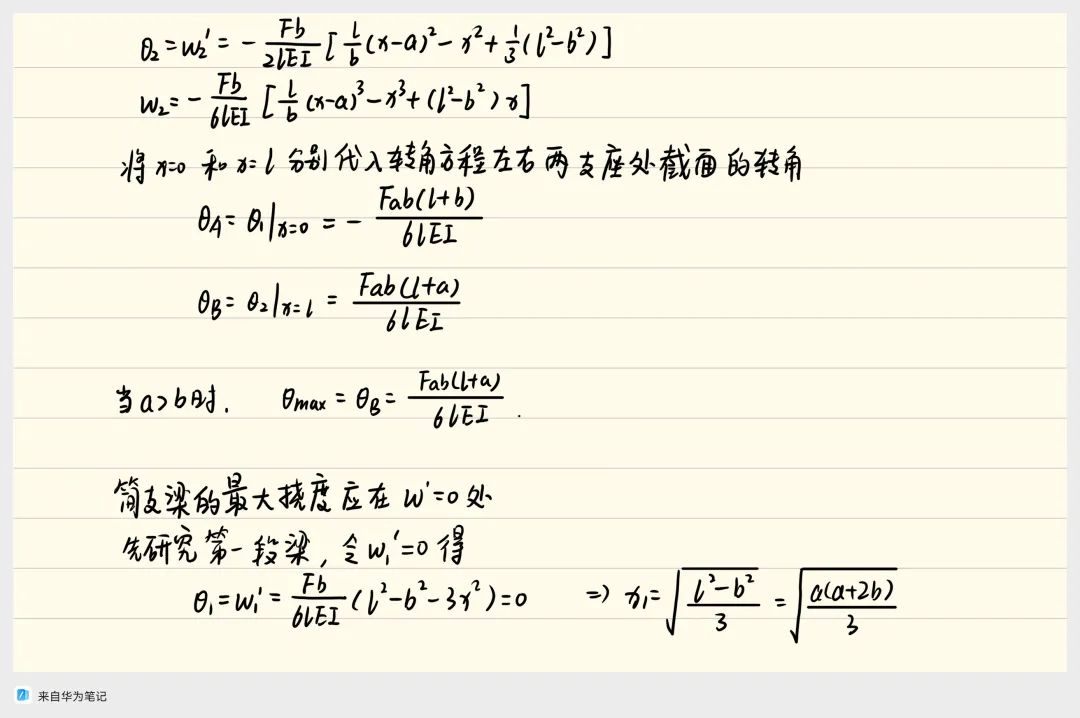 θ₂=w₂'=-Fb/2lEI[l/b(x-a)²-x²+1/3(l²-b²)]
w₂=-Fb/6lEI[l/b(x-a)³-x³+(l²-b²)x]
将x=0和x=l分别代入转角方程左右两支座处截面的转角
θA=θ₁|x=0=-Fab(l+b)/6lEI
θB=θ₂|x=l=Fab(l+a)/6lEI
当a>b时. θmax=θB=Fab(l+a)/6lEI.
简支梁的最大挠度应在w'=0处
先研究第一段梁，令w₁'=0得
θ₁=w₁'=Fb/6lEI(l²-b²-3x²)=0 ⇒ x₁=√((l²-b²)/3)=√(a(a+2b)/3)
来自华为笔记